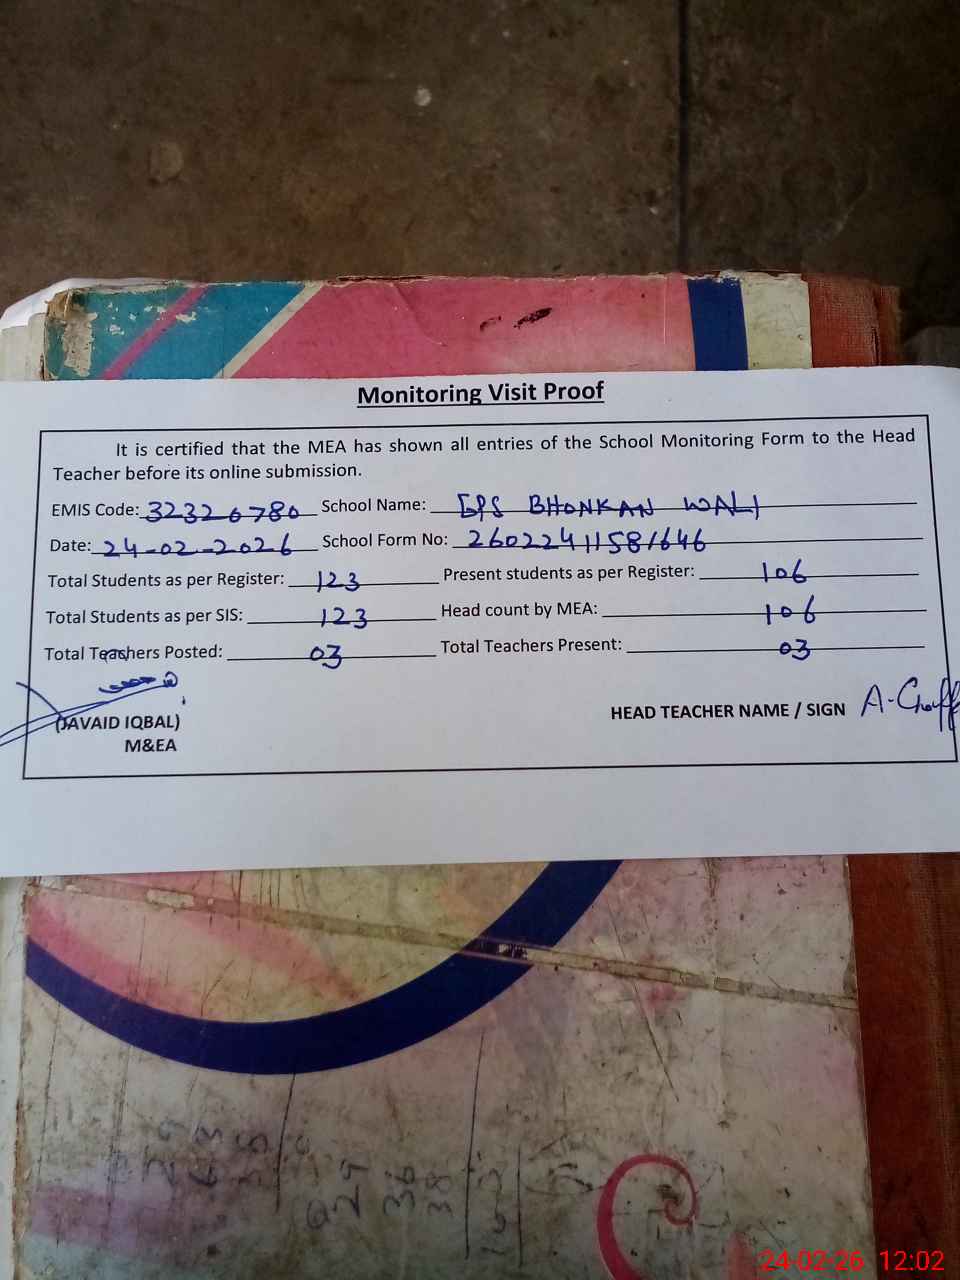 Monitoring Visit Proof
It is certified that the MEA has shown all entries of the School Monitoring Form to the Head
Teacher before its online submission.
EMIS Code: 32320780 School Name: GPS BHONKAN WALI
Date: 24-02-2026 School Form No: 26022411581646
Total Students as per Register: 123 Present students as per Register: 106
Total Students as per SIS: 123 Head count by MEA: 106
Total Teachers Posted: 03 Total Teachers Present: 03
(JAVAID IQBAL) HEAD TEACHER NAME / SIGN
M&EA
24-02-26 12:02